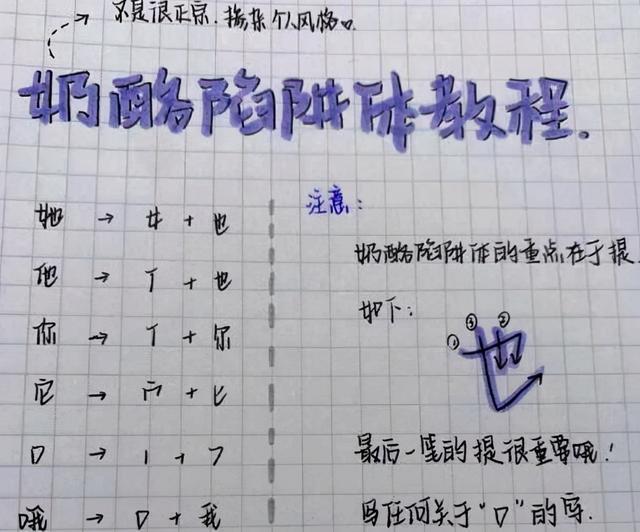 不是很正宗.掺杂个人风格。
奶酪陷阱体教程.
她 → 女 + 也
他 → 亻 + 也
你 → 亻 + 尔
它 → 宀 + 匕
口 → 丨 + ㇆
哦 → 口 + 我
注意:
奶酪陷阱体的重点在于提.
如下:
① ③ ②
也
最后一笔的提很重要哦!
写任何关于“口”的字.